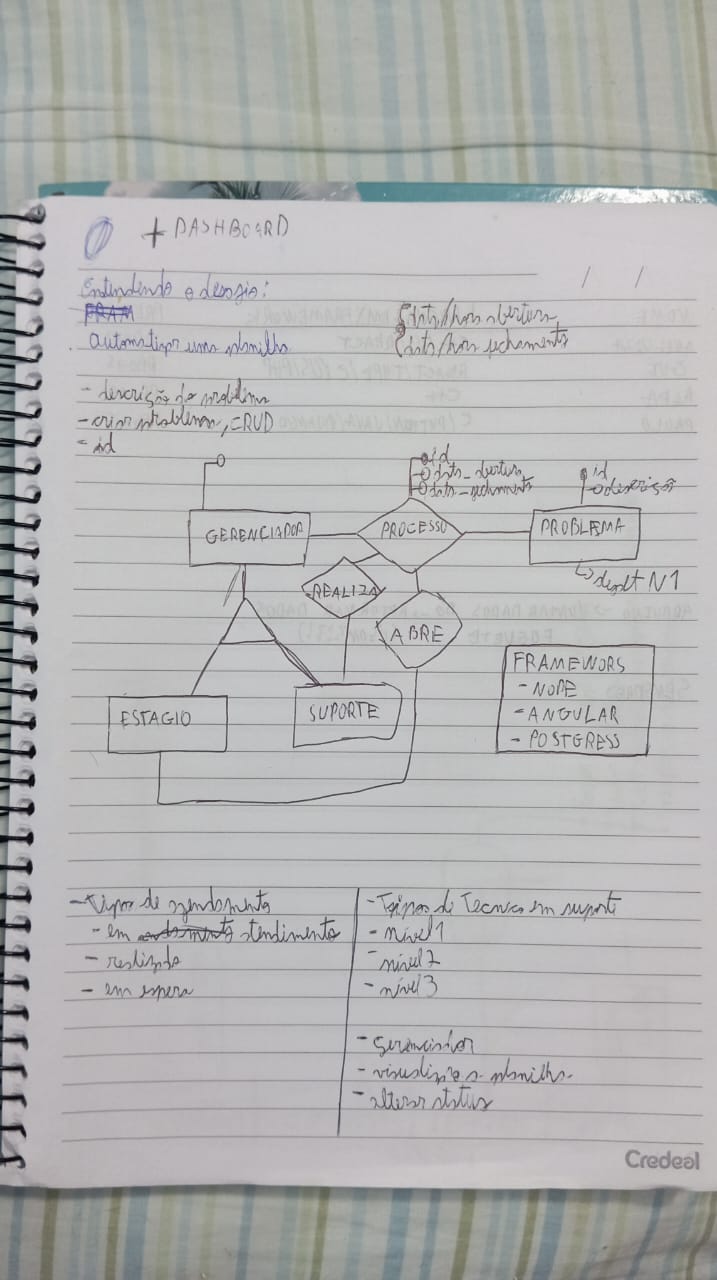 + DASHBOARD
Entendendo o desafio:
FRAM
automatizar uma planilha
data/hora abertura
data/hora fechamento
- descrição do problema
- criar problema, CRUD
- id
id
data_abertura
data_fechamento
id
descrição
GERENCIADOR
PROCESSO
PROBLEMA
N1
REALIZA
ABRE
FRAMEWORS
- NODE
- ANGULAR
- POSTGRESS
ESTAGIO
SUPORTE
- Tipos de
- em atendimento
- realizado
- em espera
- Tipos de Tecnico em suporte
- nível 1
- nível 2
- nível 3
- Gerenciador
- visualizar a planilha
- alterar status
Credeal